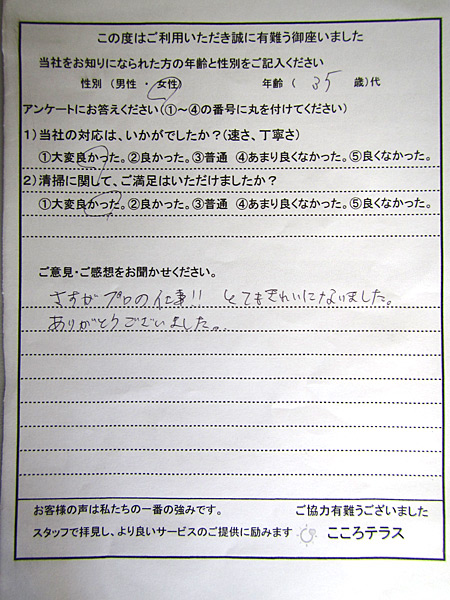 この度はご利用いただき誠に有難う御座いました
当社をお知りになられた方の年齢と性別をご記入ください
性別 (男性 ・ 女性) 年齢 ( 35 歳)代
アンケートにお答えください(①～④の番号に丸を付けてください)
1)当社の対応は、いかがでしたか?(速さ、丁寧さ)
①大変良かった。②良かった。③普通 ④あまり良くなかった。⑤良くなかった。
2)清掃に関して、ご満足はいただけましたか?
①大変良かった。②良かった。③普通 ④あまり良くなかった。⑤良くなかった。
ご意見・ご感想をお聞かせください。
さすがプロの仕事!! とてもきれいになりました。
ありがとうございました。
お客様の声は私たちの一番の強みです。 ご協力有難うございました
スタッフで拝見し、より良いサービスのご提供に励みます こころテラス